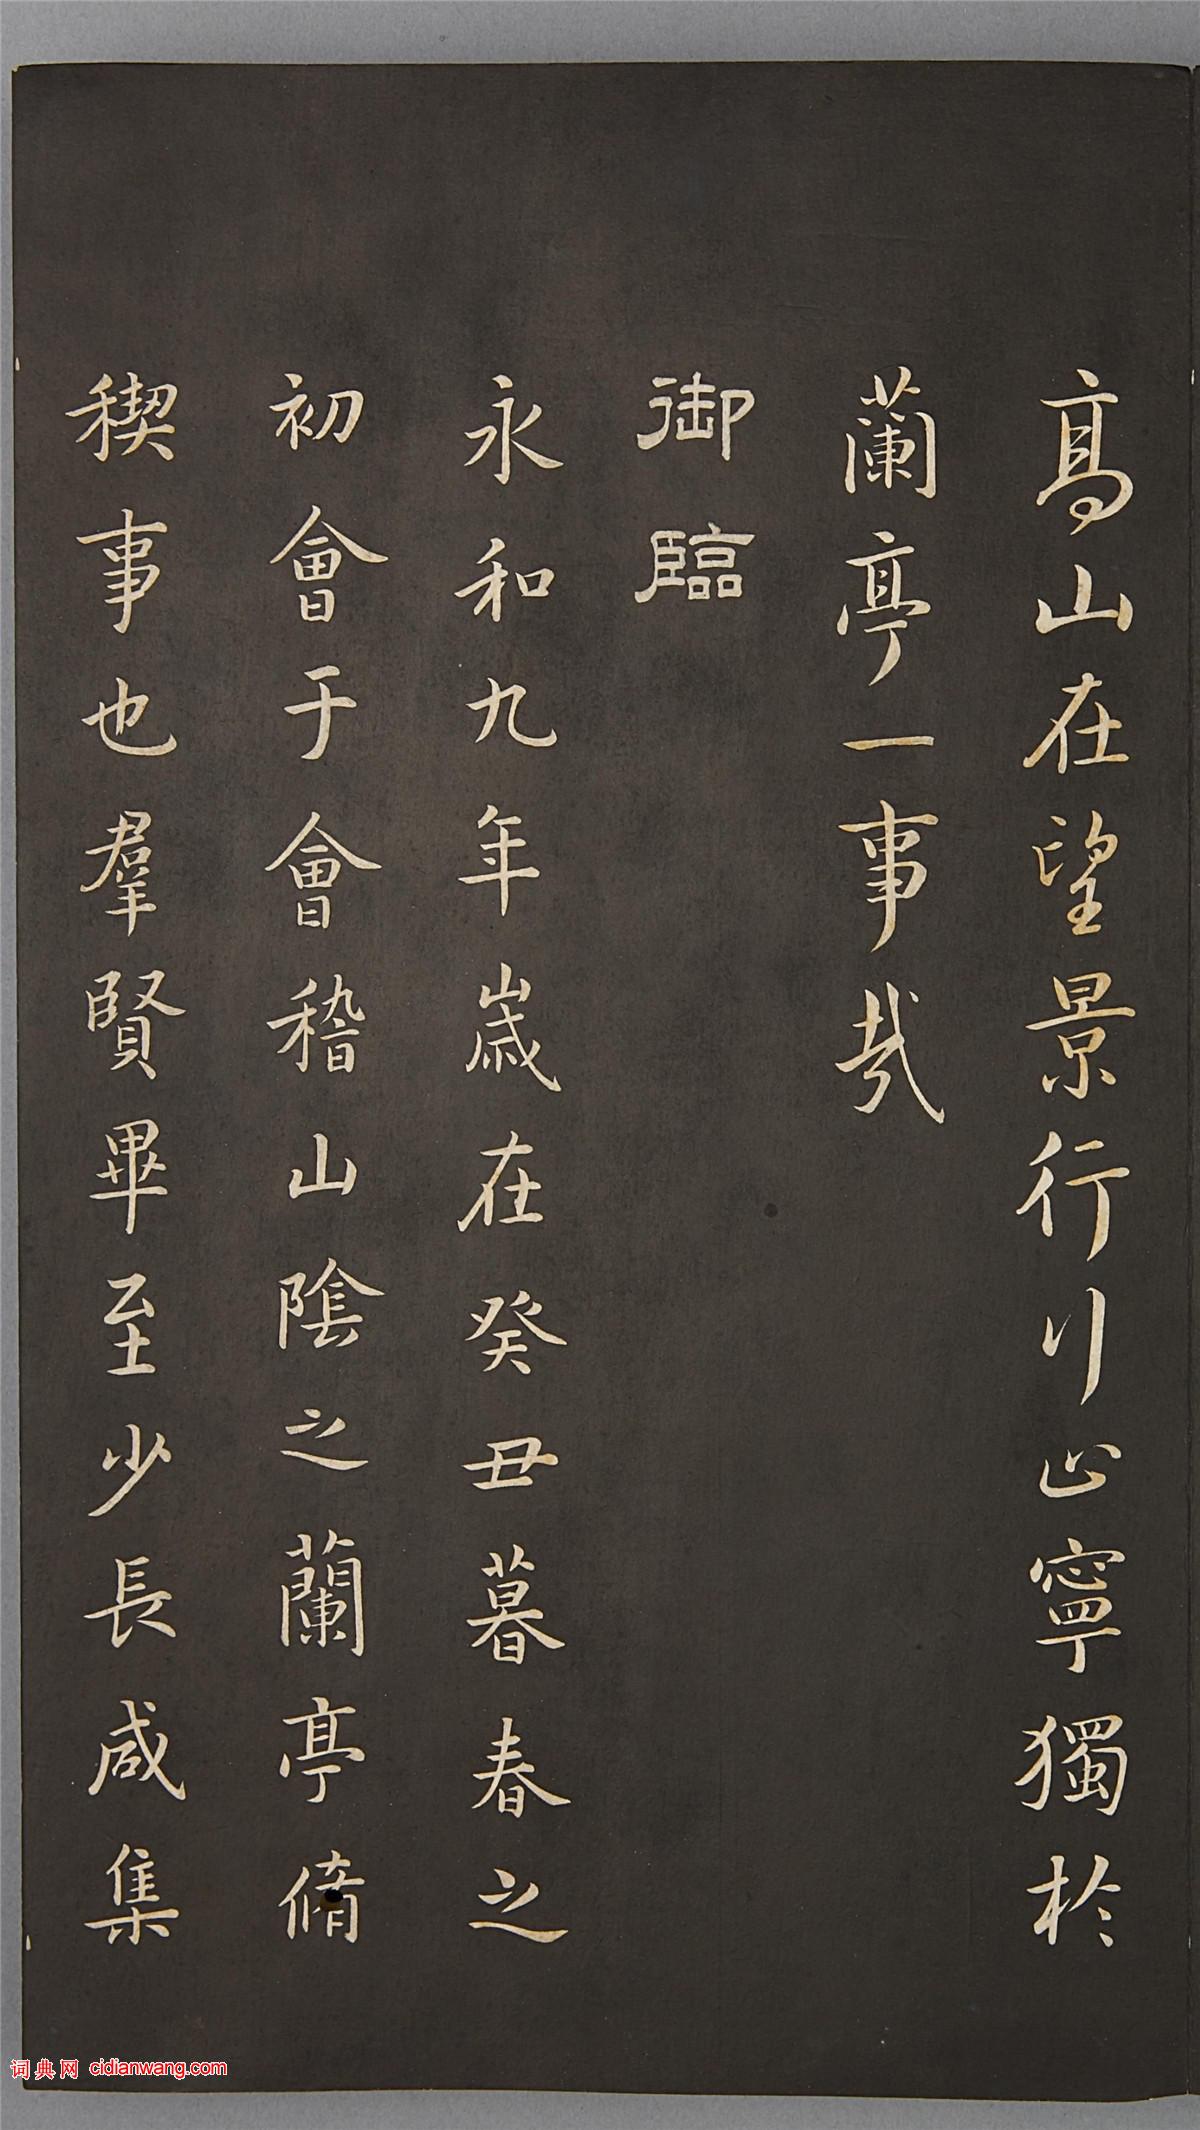 高山在望景行行止寧獨於
蘭亭一事哉
御臨
永和九年歲在癸丑暮春之
初會于會稽山陰之蘭亭脩
稧事也羣賢畢至少長咸集
词典网 cidianwang.com